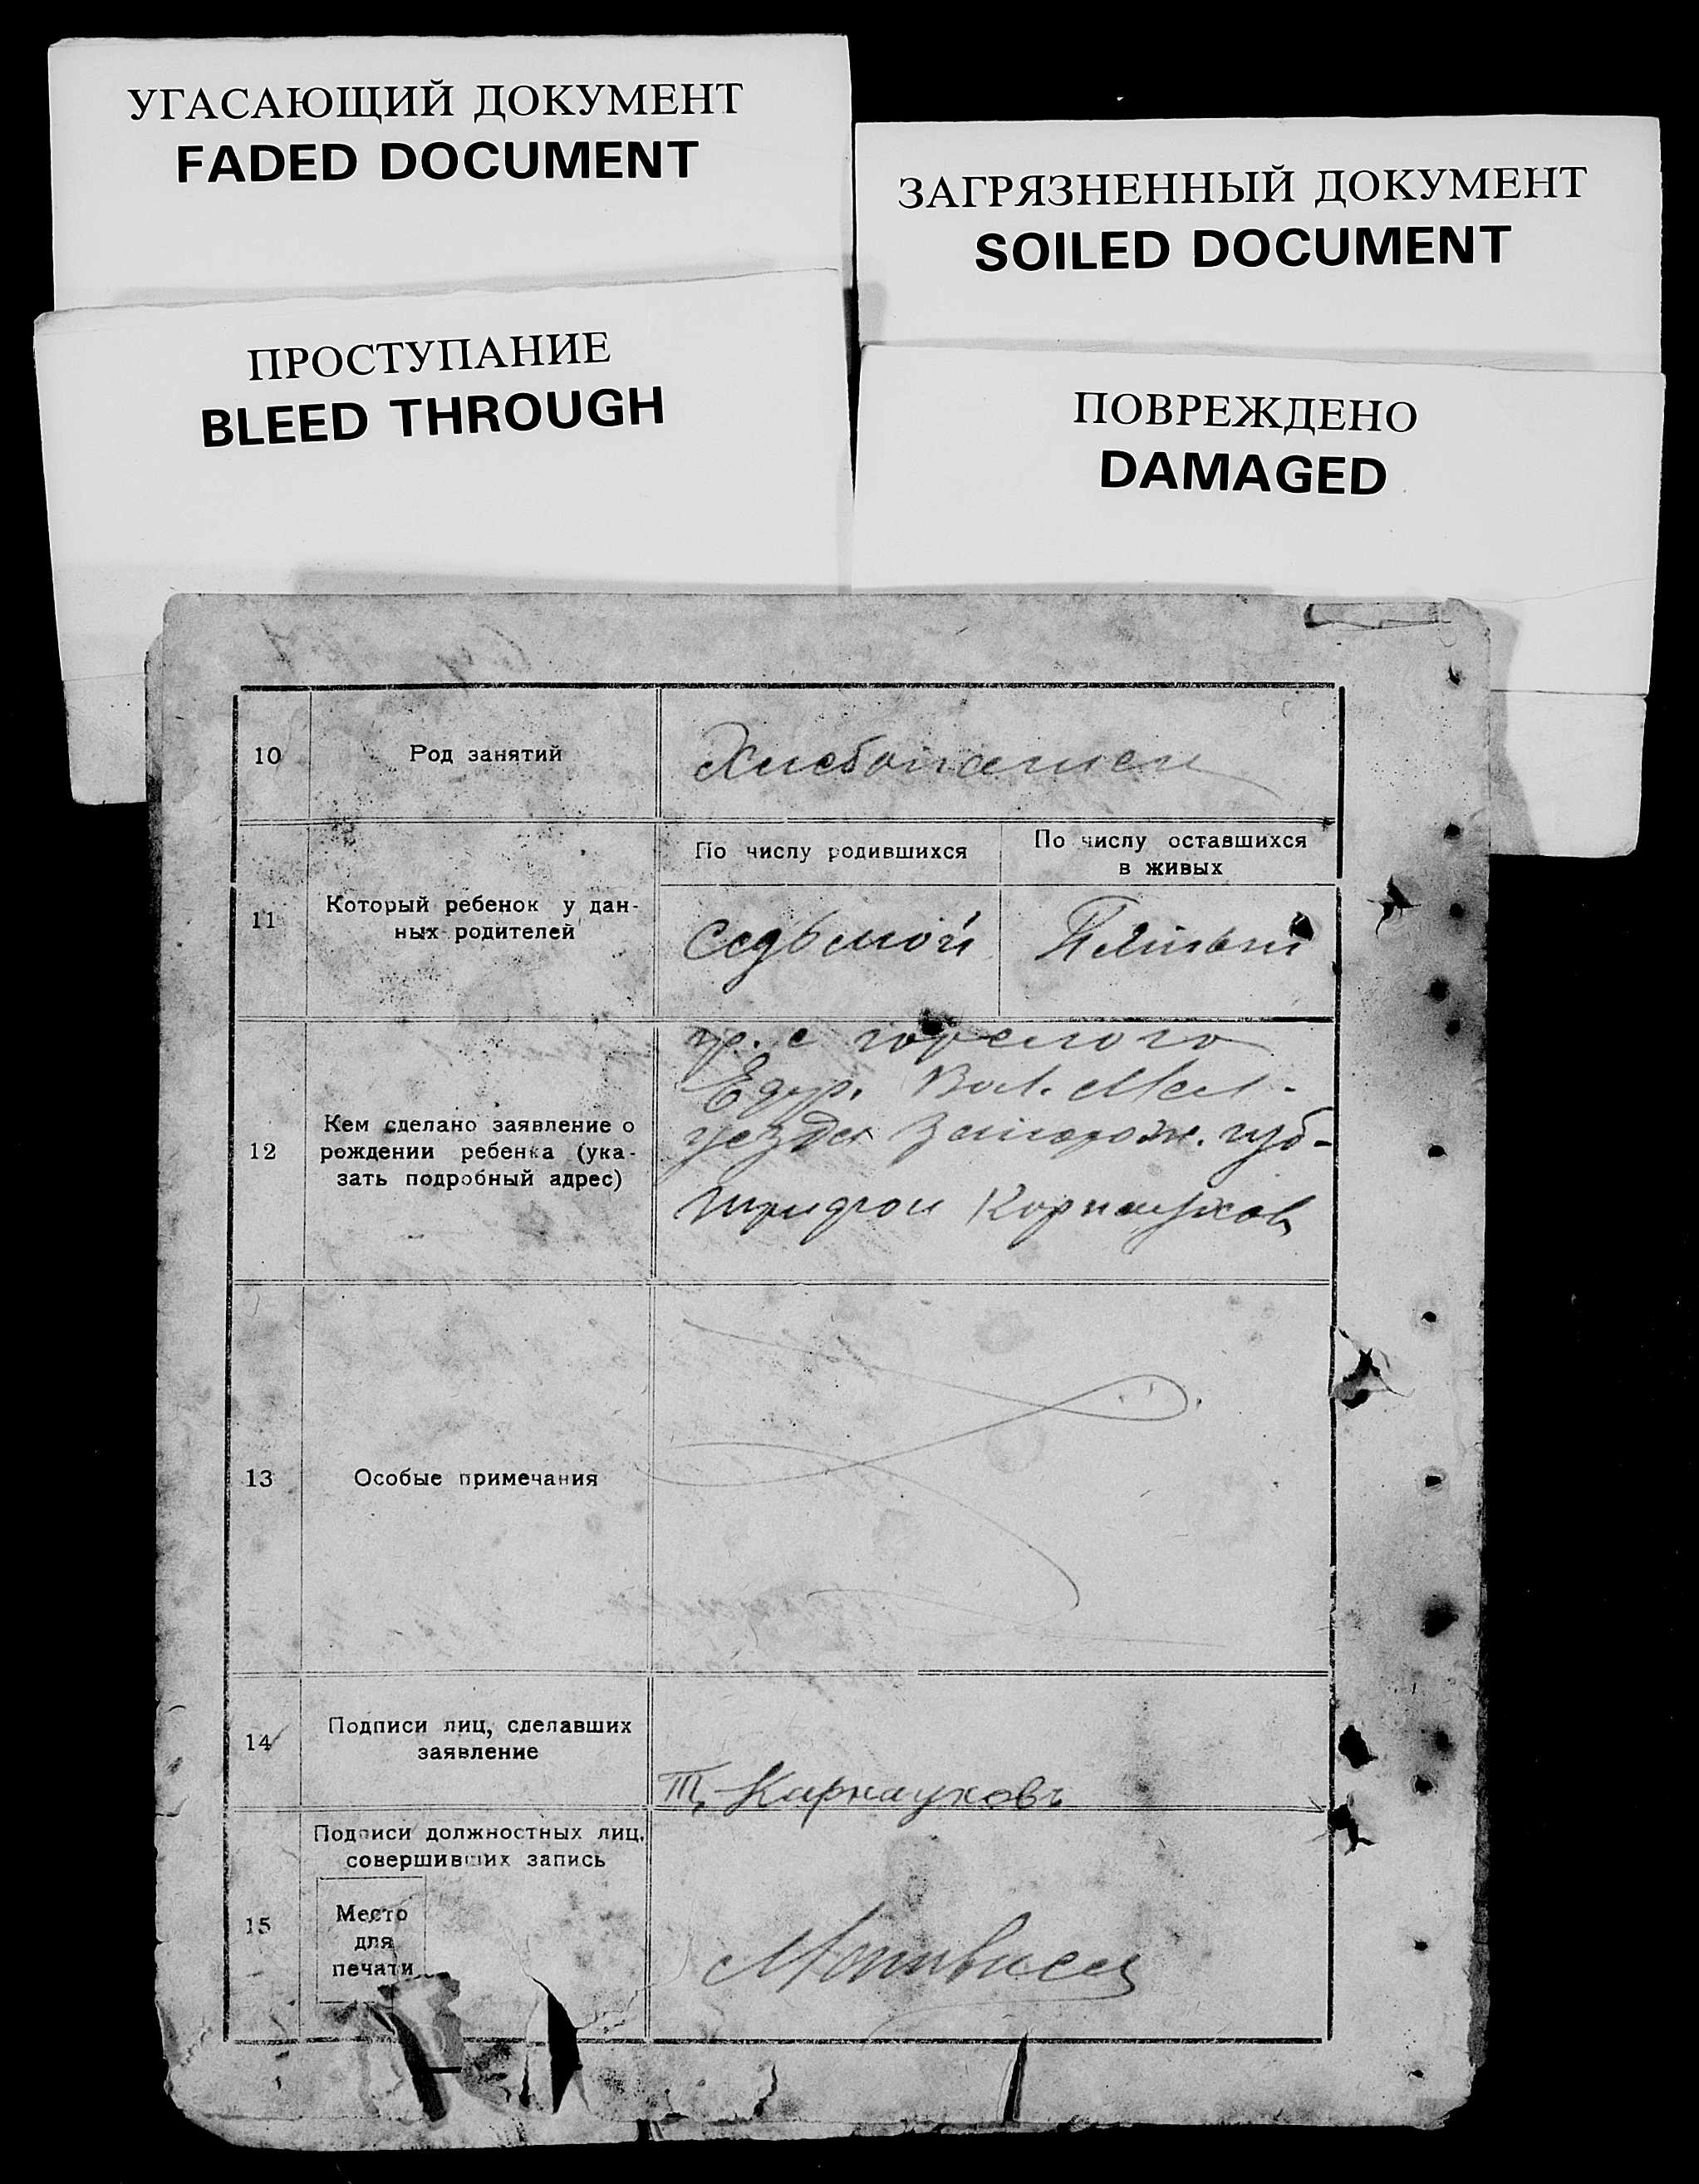 УГАСАЮЩИЙ ДОКУМЕНТ
FADED DOCUMENT
ЗАГРЯЗНЕННЫЙ ДОКУМЕНТ
SOILED DOCUMENT
ПРОСТУПАНИЕ
BLEED THROUGH
ПОВРЕЖДЕНО
DAMAGED
10
Род занятий
Хлебопашец
11
Который ребенок у дан-
ных родителей
По числу родившихся
По числу оставшихся
в живых
Седьмой
Пятый
12
Кем сделано заявление о
рождении ребенка (ука-
зать подробный адрес)
гр. с горелого
Вол. Мел-
уезда Запорож. губ-
Трифон Карнаухов
13
Особые примечания
14
Подписи лиц, сделавших
заявление
Т, Карнауховъ
15
Подписи должностных лиц,
совершивших запись
Место
для
печати